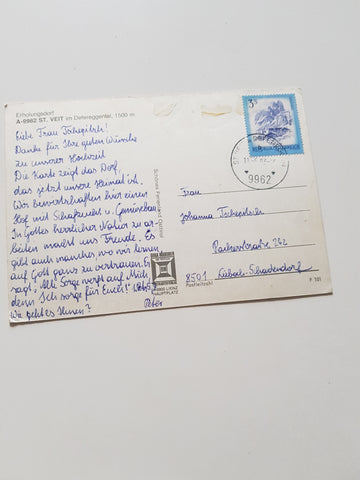 Erholungsdorf
A-9962 ST. VEIT im Defereggental, 1500 m
Liebe Frau
Danke für Ihre guten Wünsche
zu unserer Hochzeit
Die Karte zeigt das Dorf,
das jetzt unsere Heimat ist.
Wir bewirtschaften hier einen
Hof mit Schafzucht u. Gemüsebau
In Gottes herrlicher Natur zu ar-
beiten macht uns Freude. Es
gibt auch manches, wo wir lernen
auf Gott ganz zu vertrauen. Er
sagt: "Alle Sorge werft auf Mich,
denn Ich sorge für Euch!"
Wie geht es Ihnen?
Peter
9900 LIENZ
HAUPTPLATZ
3 S
REPUBLIK ÖSTERREICH
9962
Frau
Johanna
262
8501
Postleitzahl
Lieboch-Schadendorf